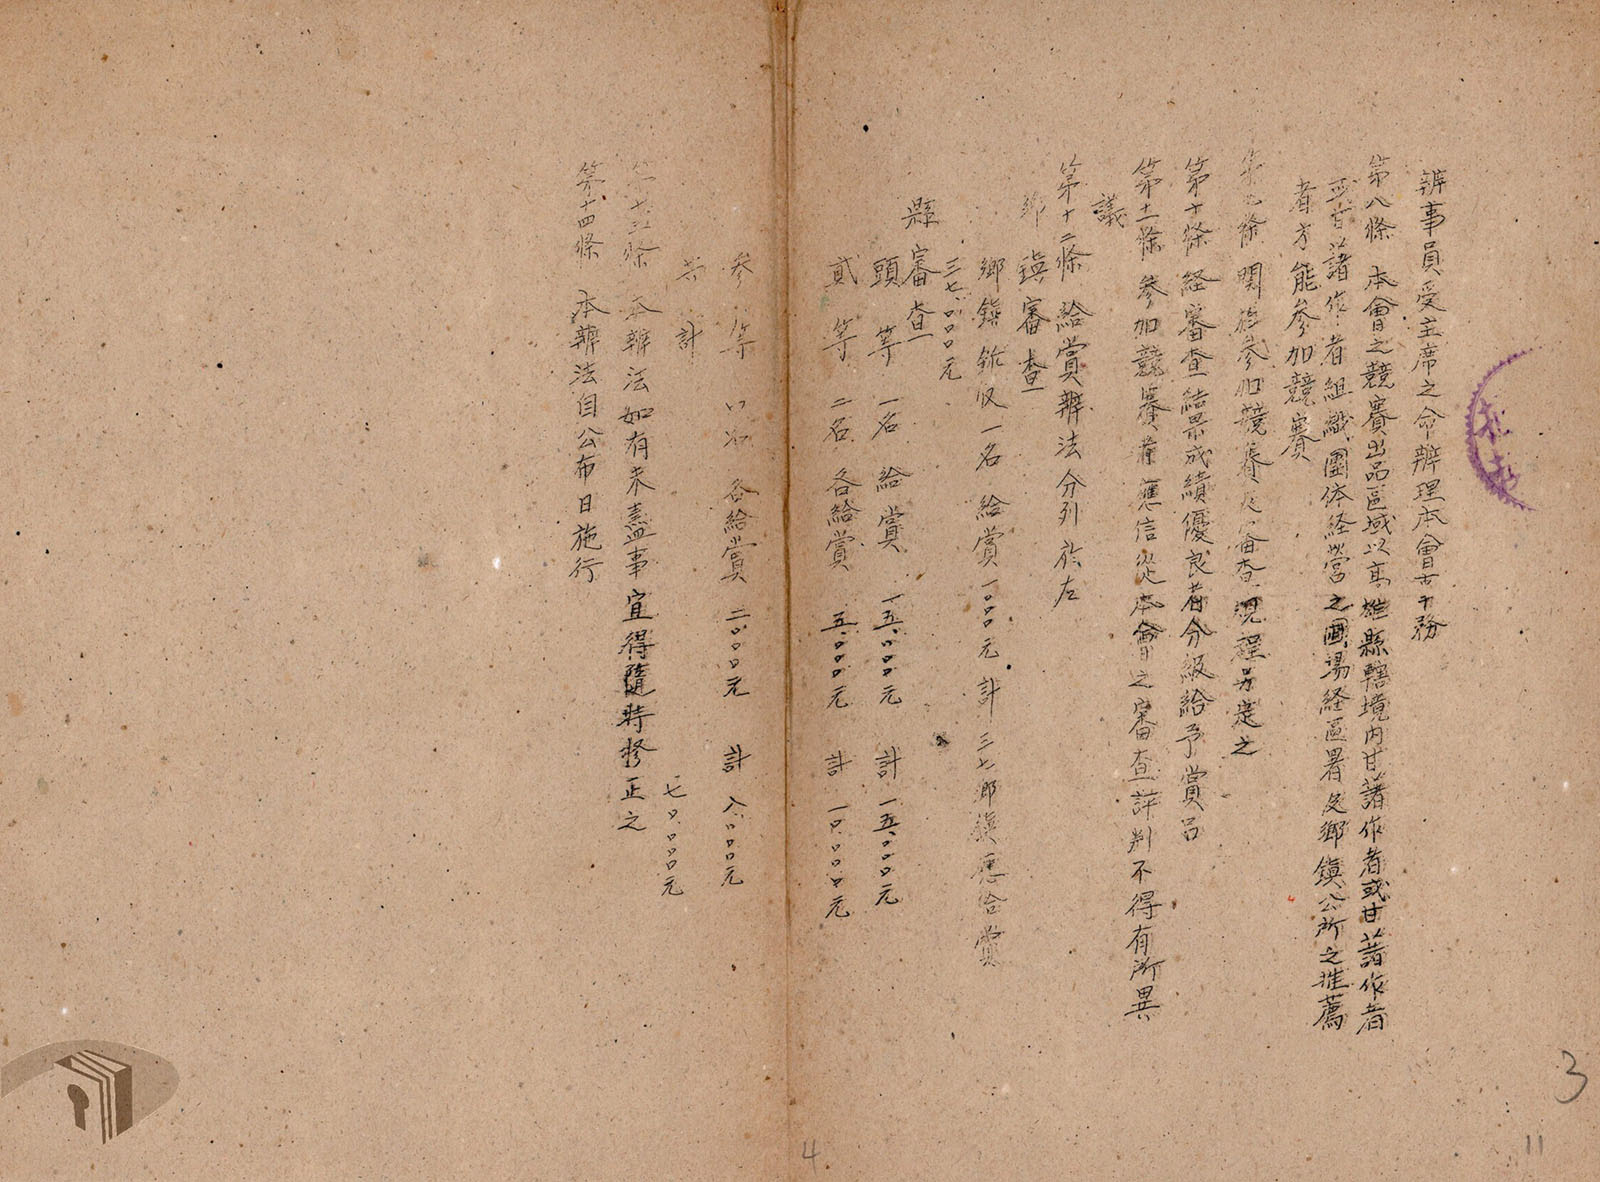 辦事員受主席之命辦理本會古干務
第八條　本會之競賽出品區域以高雄縣轄境內甘藷作者或甘藷作者
或甘藷作者組織團体経営之圃場経區署及鄉鎮公所之推薦
者方能參加競賽
第九條　関於參加競賽及審查規程另定之
第十條　経審查結果成績優良者分級給予賞品
第十一條　參加競賽者應信從本會之審查評判不得有所異
議
第十二條　給賞辦法分列於左
鄉鎮審查
鄉鎮 収一名　給賞一〇〇〇元　計三七鄉鎮應給賞
三七.〇〇〇元
縣審查
頭等　一名　給賞　一五.〇〇〇元　計　一五.〇〇〇元
貳等　二名　各給賞　五.〇〇〇元　計　一〇.〇〇〇元
參等　名　各給賞　二.〇〇〇元　計　八.〇〇〇元
共計　七〇.〇〇〇元
第十三條　本辦法如有未盡事宜得隨時修正之
第十四條　本辦法自公布日施行
3
11
4